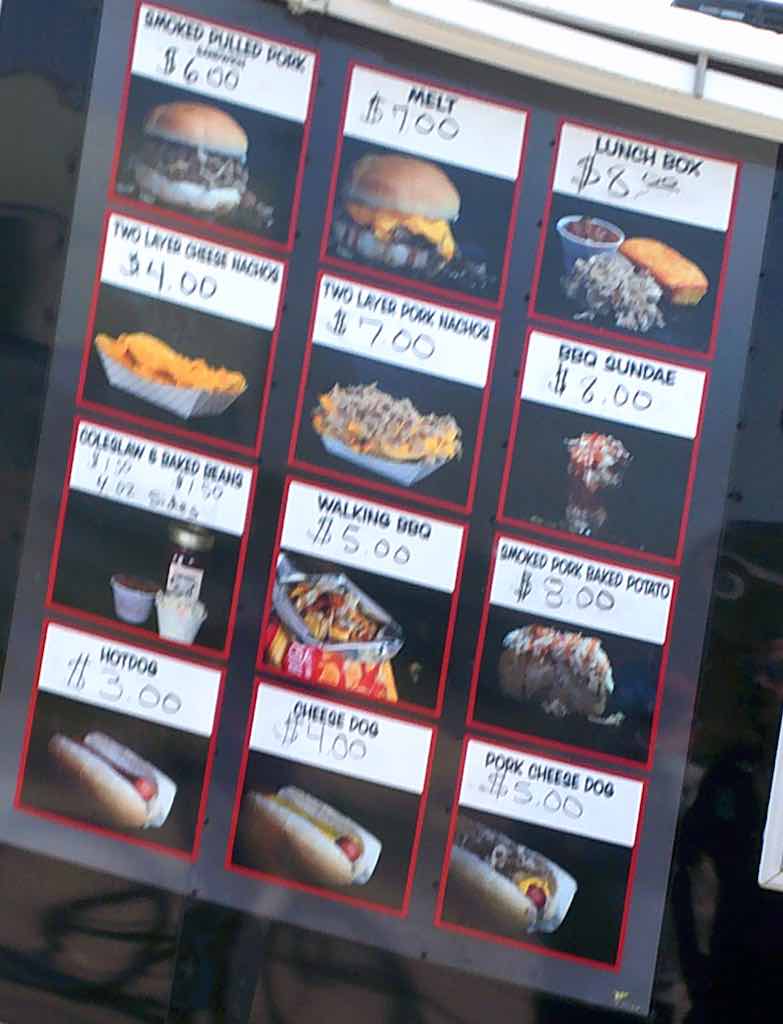 SMOKED PULLED PORK
SANDWICH
$6.00
MELT
$7.00
LUNCH BOX
$8.00
TWO LAYER CHEESE NACHOS
$4.00
TWO LAYER PORK NACHOS
$7.00
BBQ SUNDAE
$8.00
COLESLAW & BAKED BEANS
$1.50 $1.50
4 oz Sides
WALKING BBQ
$5.00
SMOKED PORK BAKED POTATO
$8.00
HOTDOG
$3.00
CHEESE DOG
$4.00
PORK CHEESE DOG
$5.00